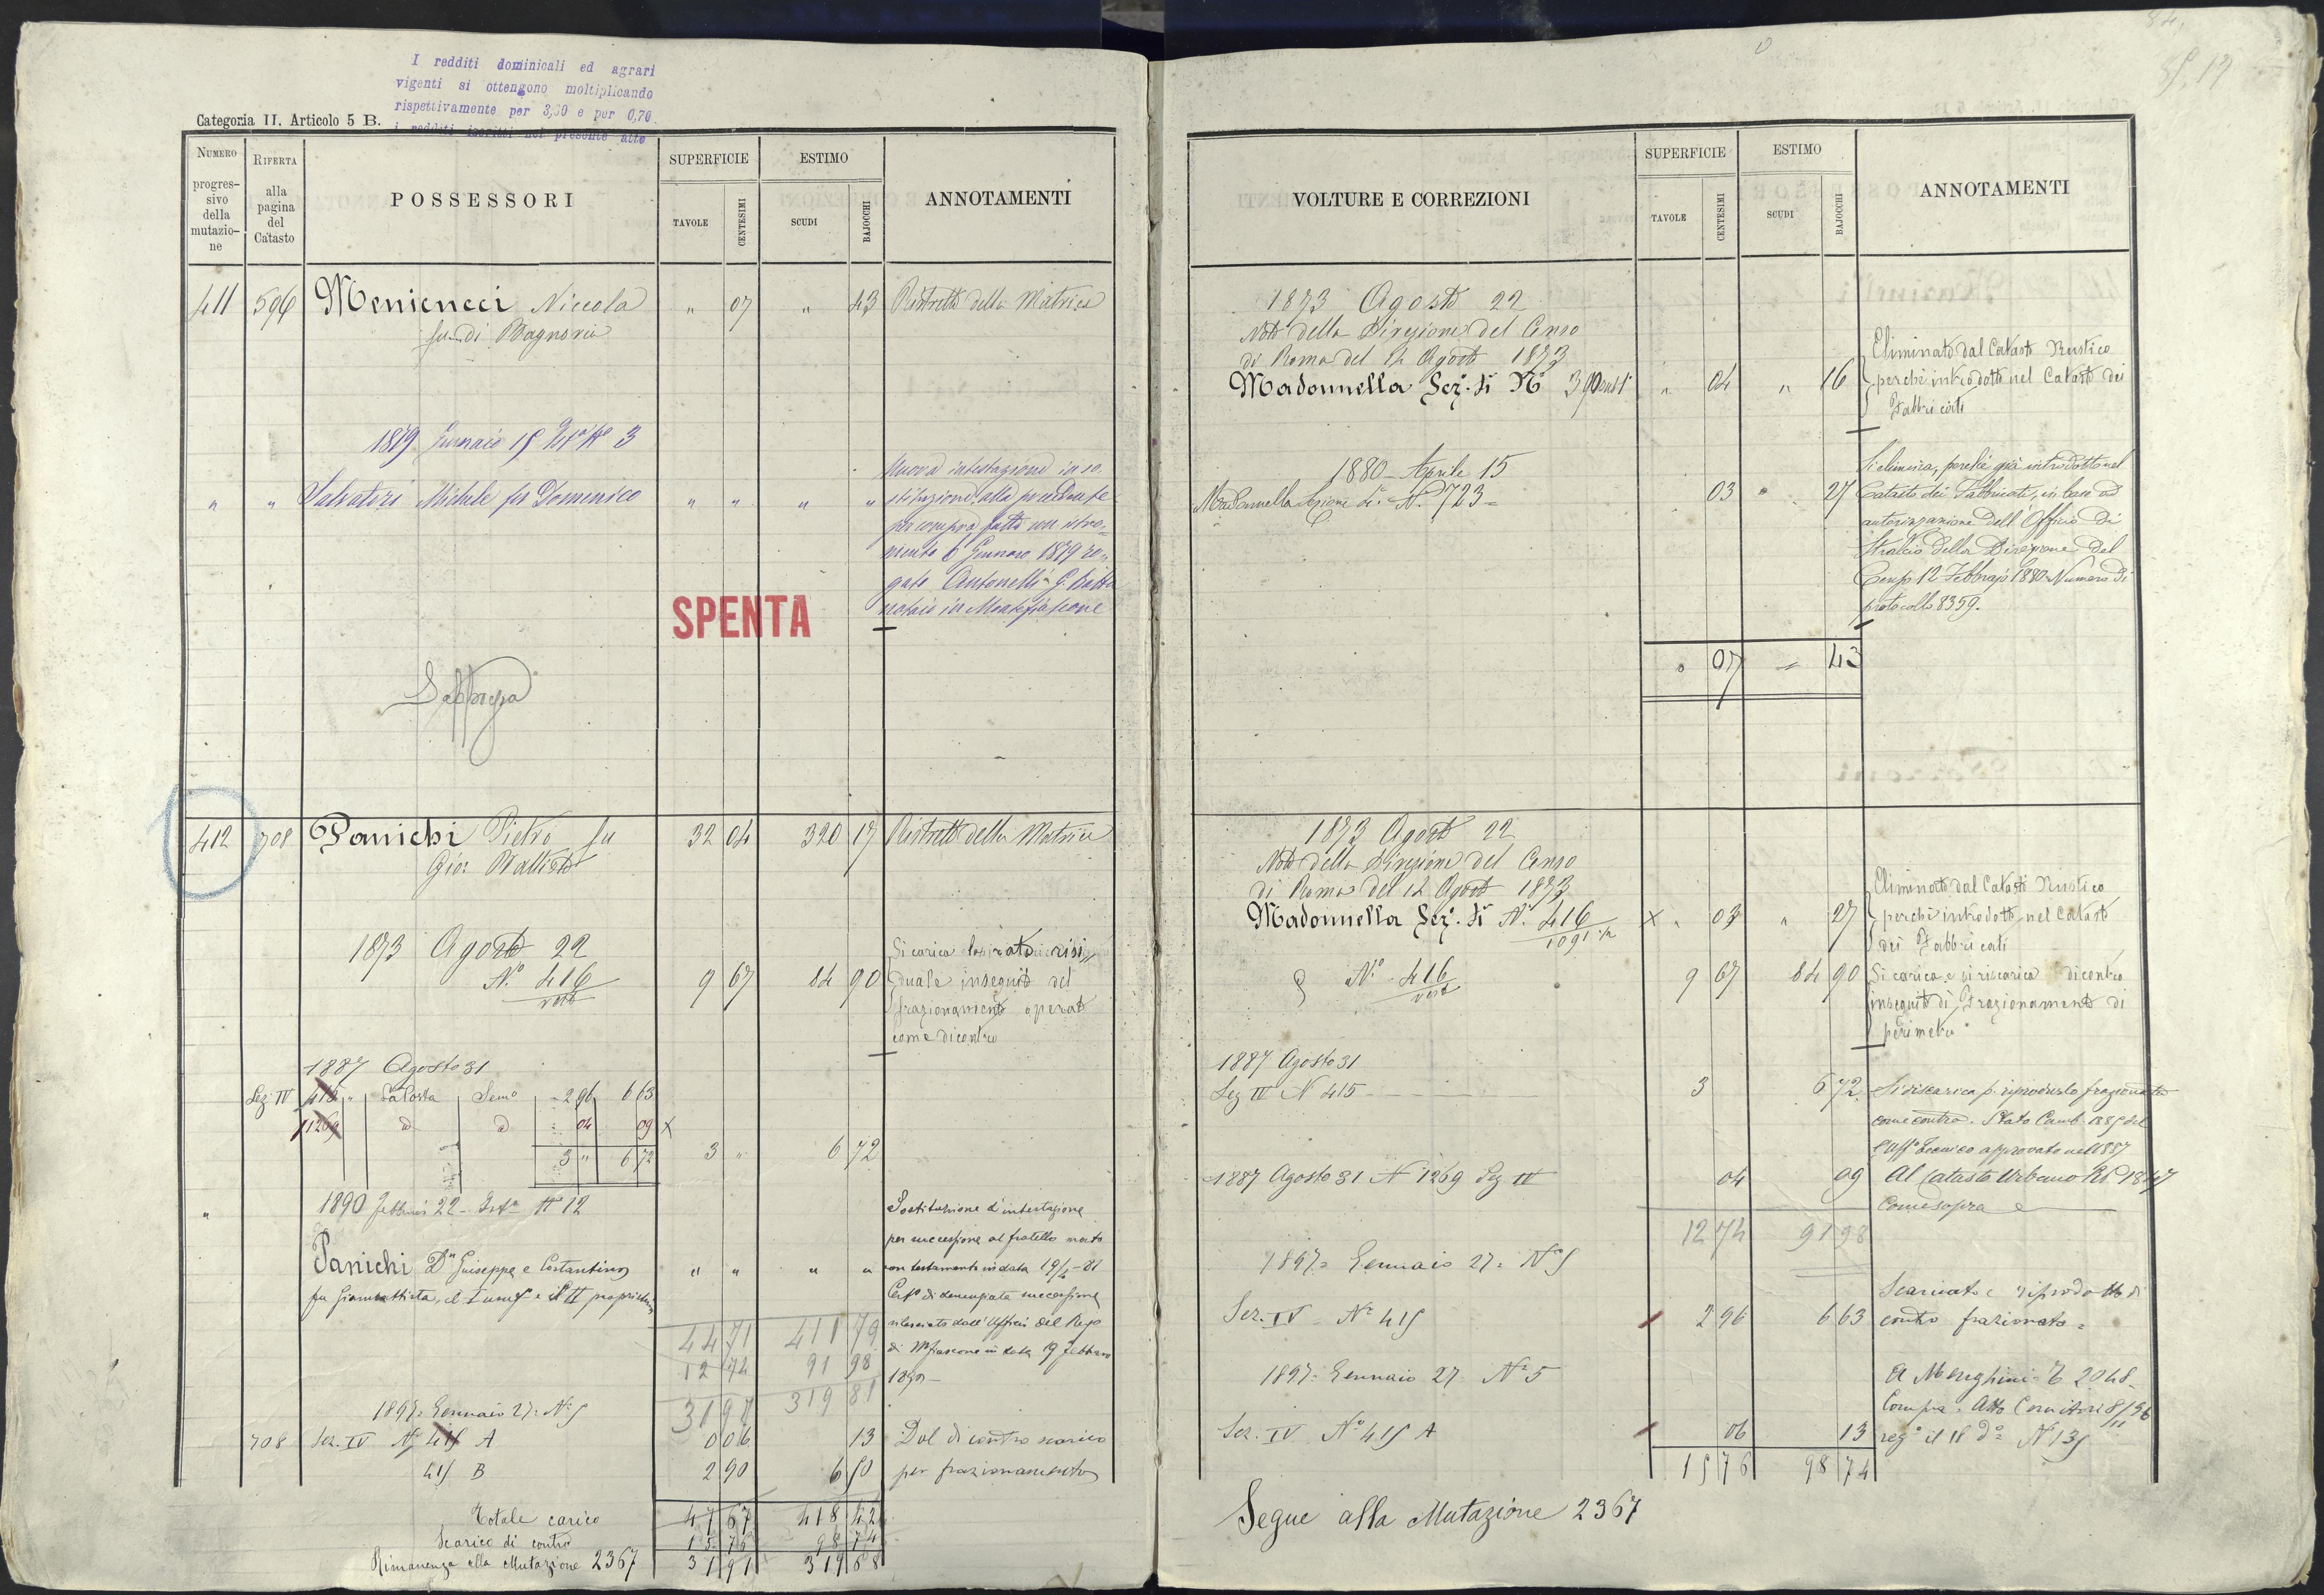 I redditi dominicali ed agrari
vigenti si ottengono moltiplicando
rispettivamente per 3,30 e per 0,70
i redditi iscritti nel presente atto
Categoria II. Articolo 5 B.
NUMERO progressivo della mutazione
RIFERTA alla pagina del Catasto
POSSESSORI
SUPERFICIE
TAVOLE
CENTESIMI
ESTIMO
SCUDI
BAJOCCHI
ANNOTAMENTI
411 596 Menicucci Niccola " 07 " 43 Ristretto della Matrice
fu di Bagnorio
1879 Gennaio 15 N° 3
" " Salvatori Michele fu Domenico " " " "
Nuova intestazione in so
stituzione alla precedente
per compra fatta con istro=
mento 6 Gennaro 1879 ro=
gato Antonelli G. Batta
notaio in Montefiascone
SPENTA
412 708 Panichi Pietro fu 32 04 320 17 Ristretto della Matrice
Gio: Battista
1873 Agosto 22
N.° 416 9 67 84 90
Si carica la rata risi
duale in seguito del
frazionamento operato
come dicontro
1887 Agosto 31
Sez IV 415 " La Porta Semo 2 96 6 63
1269 d d 04 09 X
3 " 6 72 3 " 6 72
" 1890 Febbraio 22 N° 12
Panichi Dn Giuseppe e Costantino " " " "
fu Giambattista, il I usuf e il II proprietario
Sostituzione d'intestazione
per successione al fratello morto
con testamento in data
Certo di denunziata successione
rilasciato dall'Ufficio del Rego
di Mfiascone in data 19 Febbraro
1890 —
44 71 411 79
12 74 91 98
31 97 319 81
1897 = Gennaio 27 = N° 5
708 Sez. IV N° 415 A 0 06 13 Dal di contro scarico
415 B 2 90 6 50 per frazionamento
Totale carico 47 67 418 42
Scarico di contro 15 76 98 74
Rimanenza alla Mutazione 2367 31 91 319 68
VOLTURE E CORREZIONI
SUPERFICIE
TAVOLE
CENTESIMI
ESTIMO
SCUDI
BAJOCCHI
ANNOTAMENTI
1873 Agosto 22
Nota della Direzione del Censo
di Roma del 12 Agosto 1873
Madonnella Sez. 4a N° 390 " 04 " 16
Eliminato dal Catasto Rustico
perchè introdotto nel Catasto dei
Fabbricati
1880 - Aprile 15
Madonnella Sezione 4a N. 723 = 03 " 27
Si elimina, perchè già introdotto nel
Catasto dei Fabbricati, in base ad
autorizzazione dell'Officio di
Stralcio della Direzione del
Censo 12 Febbrajo 1880 Numero di
protocollo 8359.
" 07 " 43
1873 Agosto 22
Nota della Direzione del Censo
di Roma del 12 Agosto 1873
Madonnella Sez. 4a N.° 416 X " 03 " 27
Eliminato dal Catasto Rustico
perchè introdotto nel Catasto
dei Fabbricati
N.° 416 9 67 84 90
Si carica e si riscarica dicontro
in seguito di Frazionamento di
perimetro
1887 Agosto 31
Sez IV N 415 3 6 72
Si discarica p. riprodurlo frazionato
come contro. Stato Camb. 1885 del
l'Uffo Tecnico approvato nel 1887
1887 Agosto 31 N 1269 Sez IV 04 09 Al Catasto Urbano
Come sopra
12 74 91 98
1897 = Gennaio 27 = N° 5
Sez. IV N° 415 2 96 6 63
Scaricato e riprodotto di
contro frazionato =
1897 = Gennaio 27 N° 5
Sez. IV N° 415 A 06 13
A Menghini = 2048
Compra = Atto
reg° il 18 d° N° 135
15 76 98 74
Segue alla Mutazione 2367